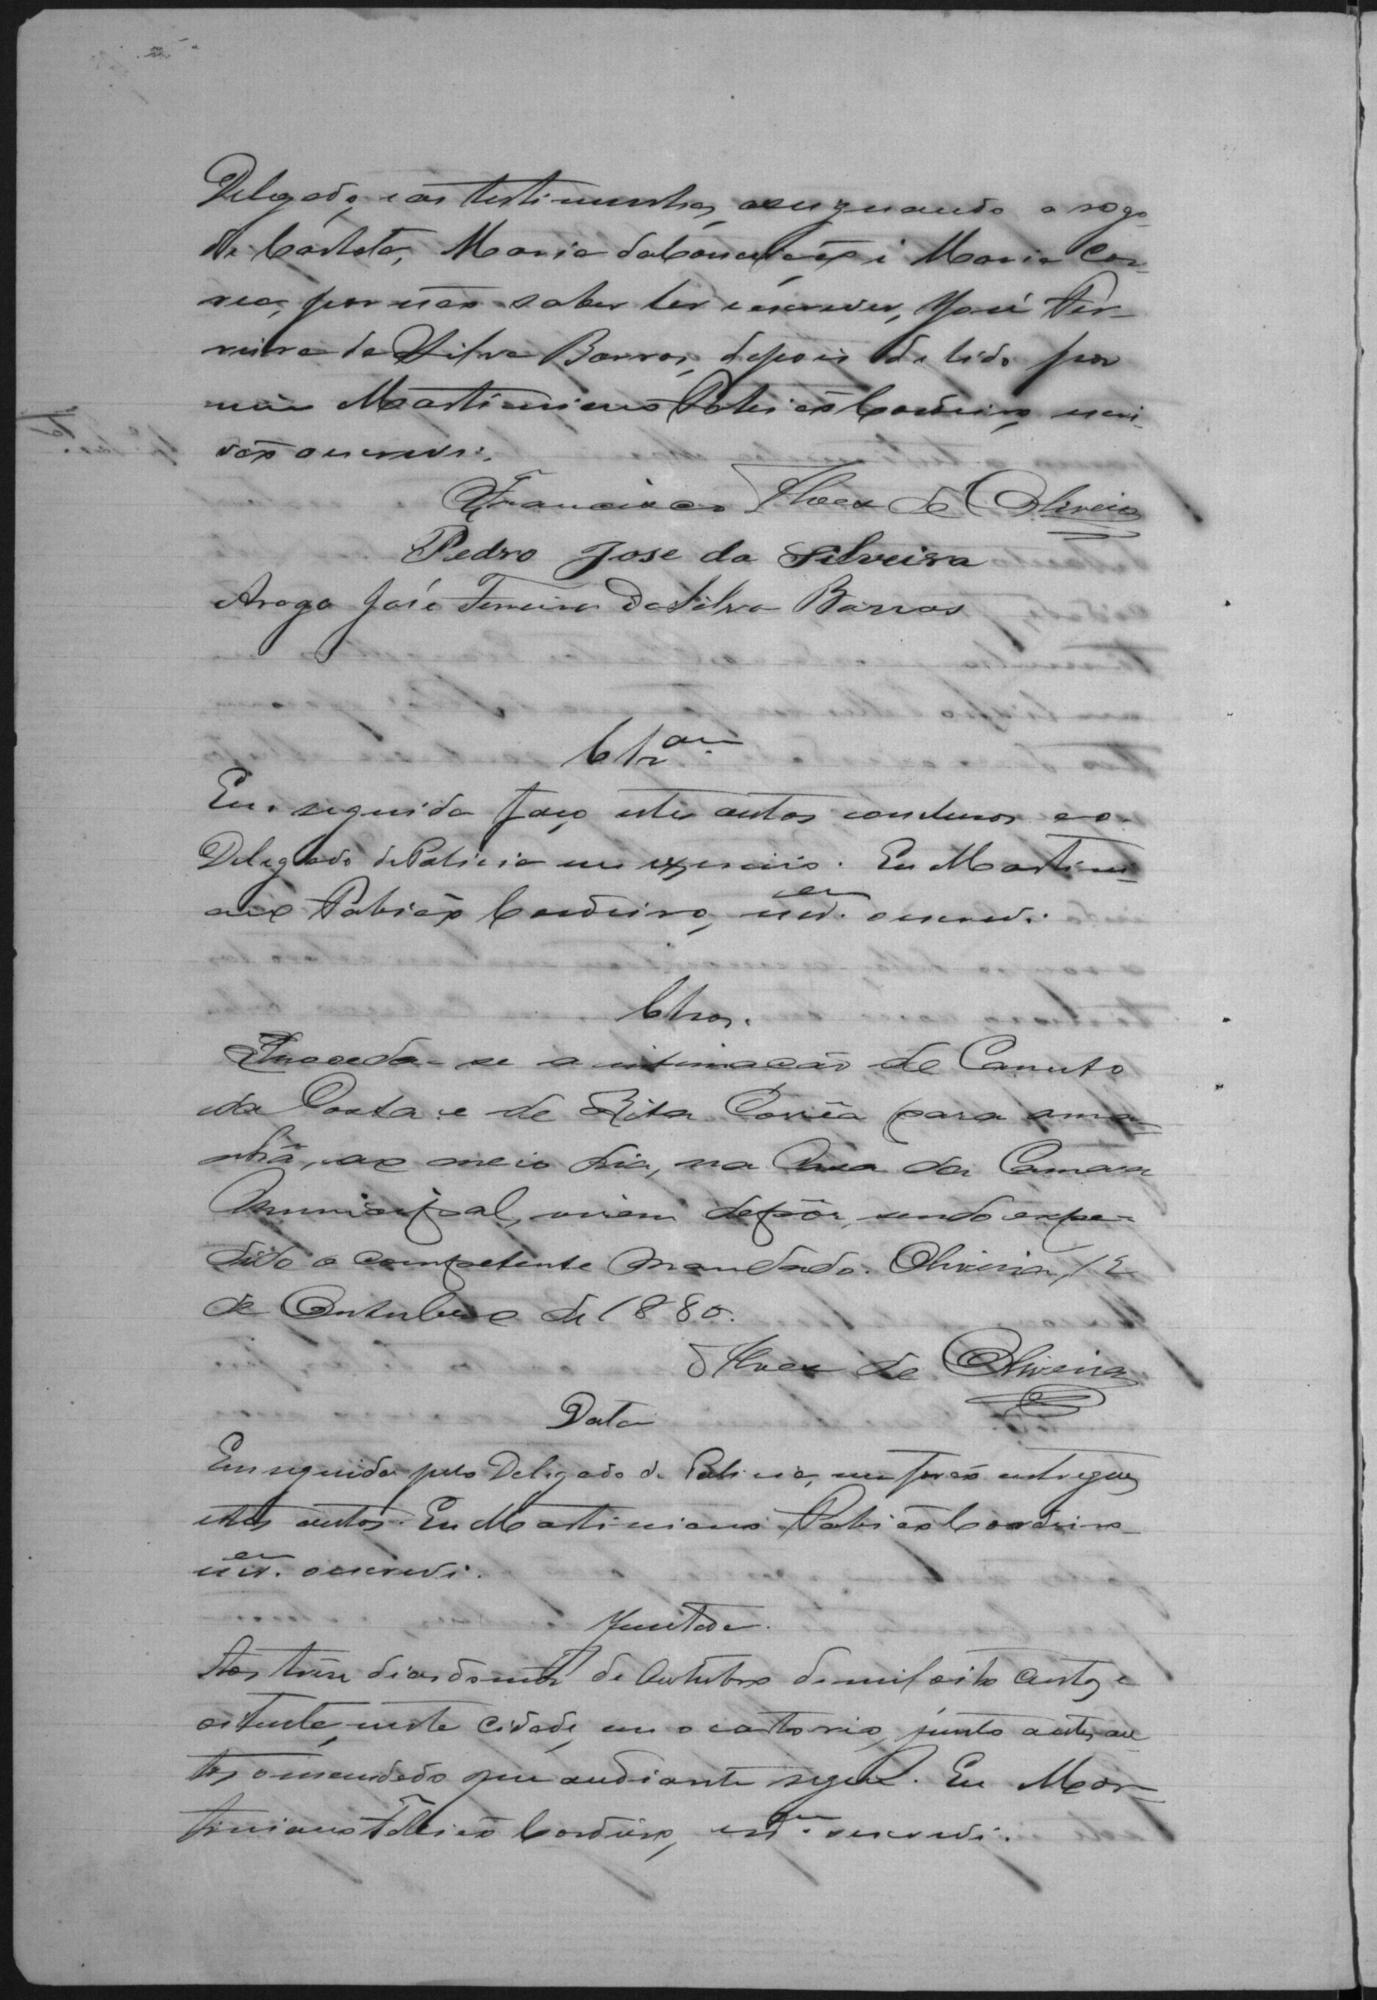 Delegado, e as testimunhas, assignando a rogo
de Maria da Conceição e Maria Cor-
rea, por não saber ler e escrever, José Fer-
reira da Silva Barros, depois de lido por
mim Martiniano Cordeiro, escri-
vão o escrevi.
Francisco Alves de Oliveira
Pedro Jose da Silveira
Arogo José Ferreira Da Silva Barros
Clz.am
Em seguida faço estes autos conclusos ao
Delegado de Policia em exercicio. Eu Martini-
ano Cordeiro, escr.am o escrevi.
Clsos.
Proceda-se a intimação de Canuto
da Costa e de Rita Corrêa para ama-
nhã, ao meio dia, na Casa da Camara
Municipal, virem depôr, sendo expe-
dido o competente mandado. Oliveira, 12
de Outubro de 1880.
Alves de Oliveira
Data
Em seguida pelo Delegado de Policia, me forão entregues
estes autos. Eu Martiniano Cordeiro
escr.am o escrevi.
Juntada.
Aos trese dias do mês de Outubro de mil oito centos e
oitenta, nesta cidade, em o cartorio, junto a estes au-
tos o mandado que audiante segue. Eu Mar-
tiniano Cordeiro, escr.am o escrevi.